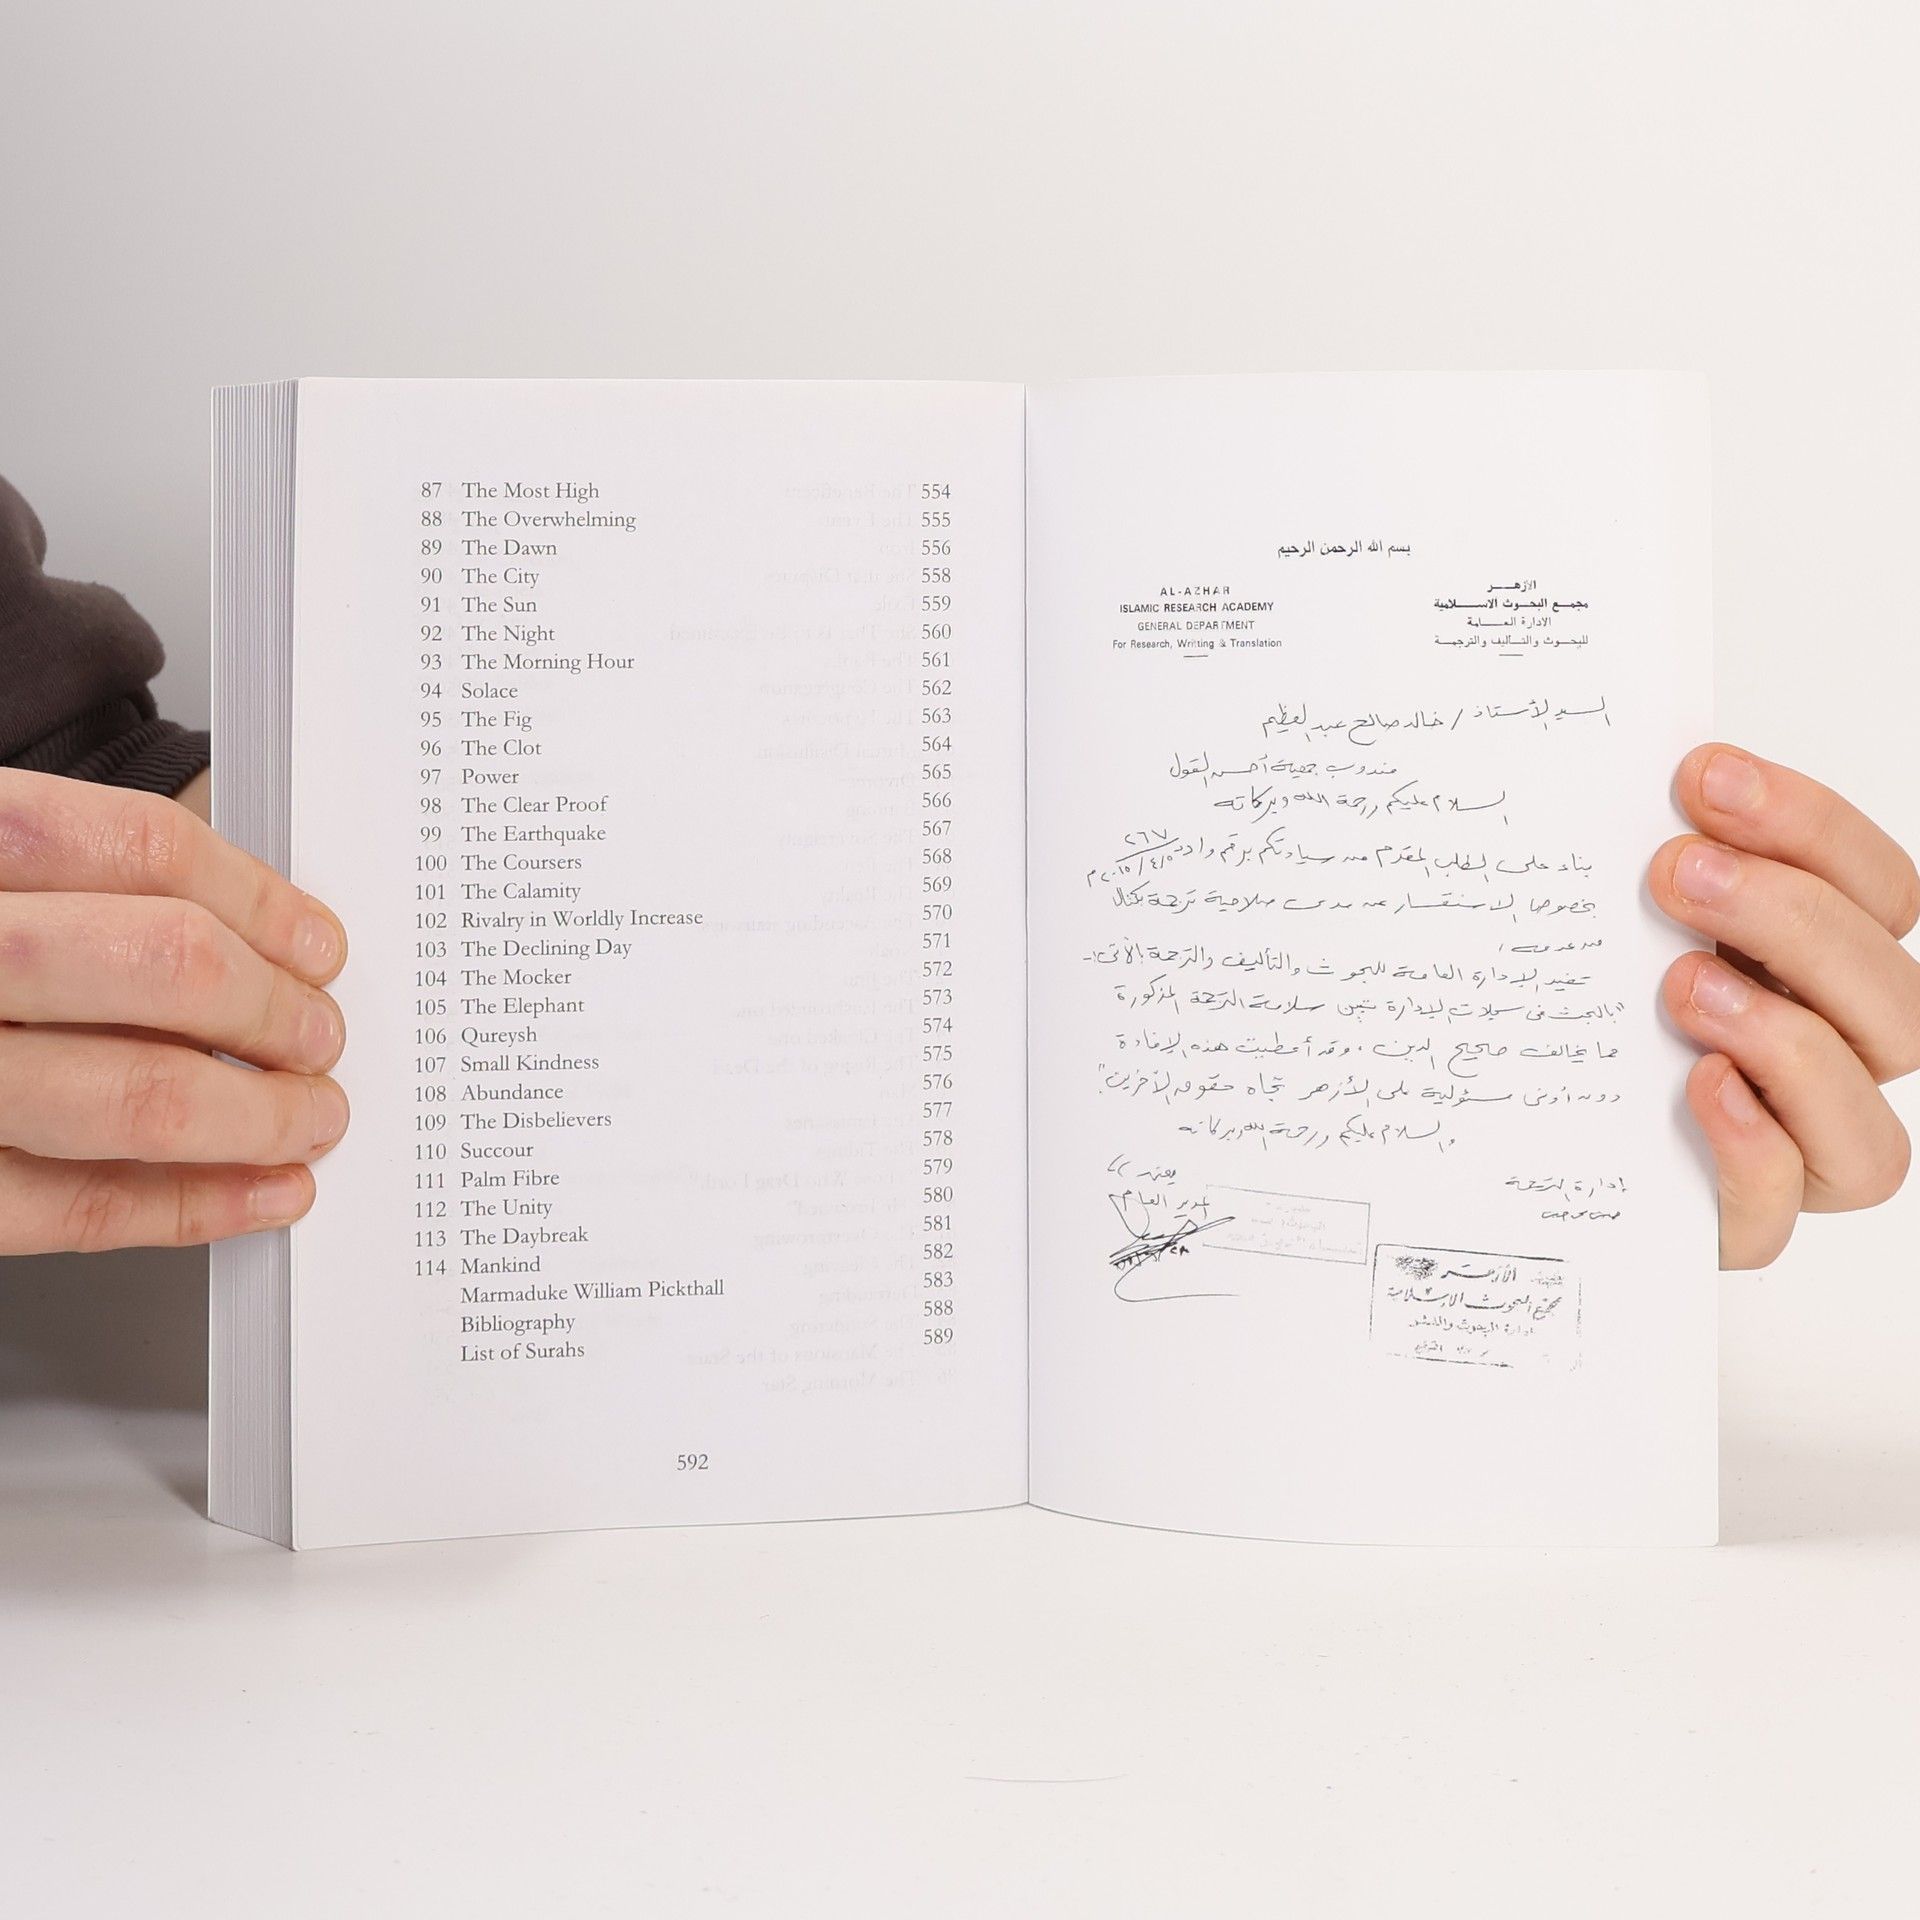 87 The Most High 554
88 The Overwhelming 555
89 The Dawn 556
90 The City 558
91 The Sun 559
92 The Night 560
93 The Morning Hour 561
94 Solace 562
95 The Fig 563
96 The Clot 564
97 Power 565
98 The Clear Proof 566
99 The Earthquake 567
100 The Coursers 568
101 The Calamity 569
102 Rivalry in Worldly Increase 570
103 The Declining Day 571
104 The Mocker 572
105 The Elephant 573
106 Qureysh 574
107 Small Kindness 575
108 Abundance 576
109 The Disbelievers 577
110 Succour 578
111 Palm Fibre 579
112 The Unity 580
113 The Daybreak 581
114 Mankind 582
Marmaduke William Pickthall 583
Bibliography 588
List of Surahs 589
592
بسم الله الرحمن الرحيم
AL-AZHAR
ISLAMIC RESEARCH ACADEMY
GENERAL DEPARTMENT
For Research, Writing & Translation
الأزهـــر
مجمـع البحـوث الاســـلامية
الادارة العـــامة
للبحـوث والتـأليف والترجمـــة
السيد الأستاذ / خالد صالح عبد العظيم
مندوب جمعية أحسن القول
السلام عليكم ورحمة الله وبركاته
بناء على الطلب المقدم من سيادتكم برقم وارد ٢٦٧
٢٠١٥/٤/٥ م
بخصوص الاستفسار عن مدى صلاحية ترجمة بكتال
تفيد الإدارة العامة للبحوث والتأليف والترجمة بالآتى:-
"بالبحث فى سجلات الإدارة تبين سلامة الترجمة المذكورة
مما يخالف صحيح الدين، وقد أعطيت هذه الإفادة
دون أدنى مسئولية على الأزهر تجاه حقوق الآخرين"
والسلام عليكم ورحمة الله وبركاته
يعتمد
المدير العام
إدارة الترجمة
الأزهر
مجمع البحوث الإسلامية
إدارة البحوث والنشر